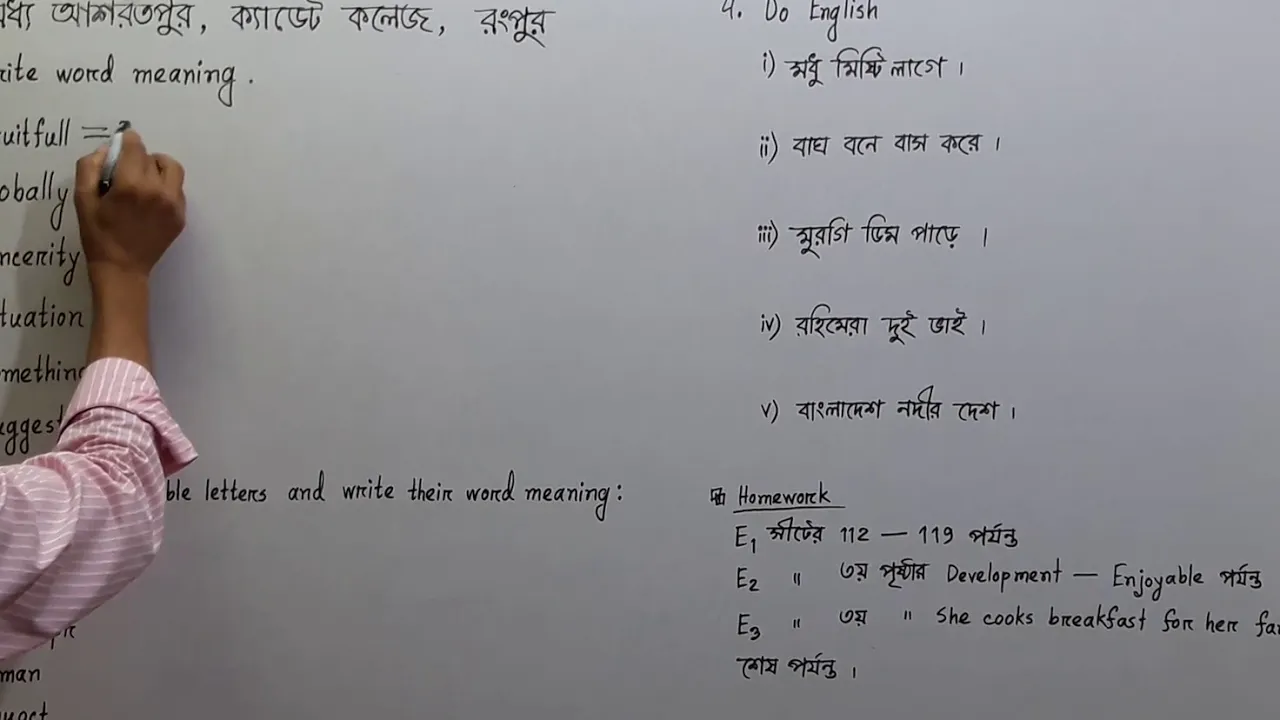 মধ্য আশরতপুর, ক্যাডেট কলেজ, রংপুর
rite word meaning.
uitfull =
obally
ncerity
tuation
methin
ugges
ble letters and write their word meaning:
man
4. Do English
i) মধু মিষ্টি লাগে।
ii) বাঘ বনে বাস করে।
iii) মুরগি ডিম পাড়ে।
iv) রহিমেরা দুই ভাই।
v) বাংলাদেশ নদীর দেশ।
Homework
E1 সীটের 112 — 119 পর্যন্ত
E2 " ৩য় পৃষ্ঠার Development — Enjoyable পর্যন্ত
E3 " ৩য় " She cooks breakfast for her fa
শেষ পর্যন্ত।